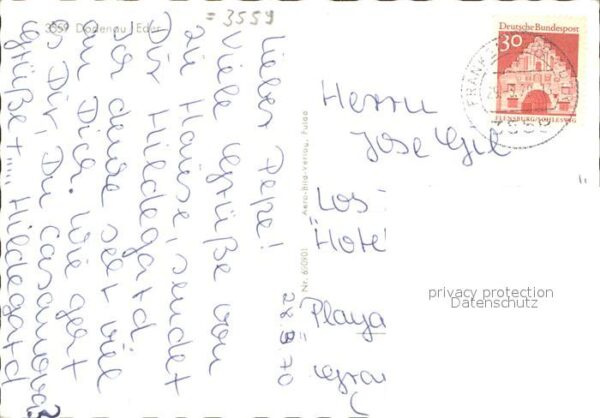 = 3559
3559 Dodenau / Eder
28.3.70
Lieber Pepe!
Viele Grüße von
zu Hause, sendet
Dir Hildegard
Ich denke sehr viel
an Dich. Wie geht
es Dir, Du Casanova?
Grüße Hildegard
Nr. 610901 Aero-Bild-Verlag, Fulda
Deutsche Bundespost
30
FLENSBURG/SCHLESWIG
FRANKE
3558
Herrn
Jose Gil
Los
Hotel
Playa
Gran
privacy protection
Datenschutz